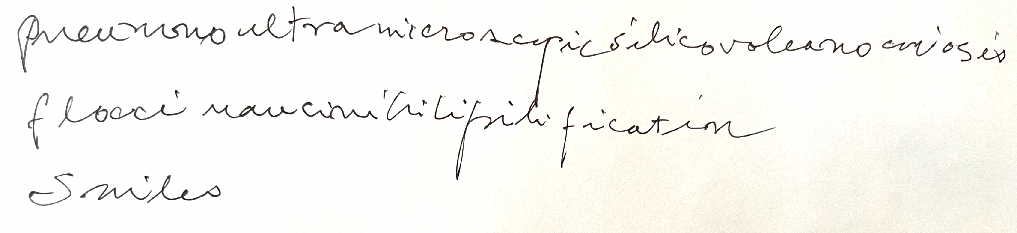 pneumonoultramicroscopicsilicovolcanoconiosis
floccinaucinihilipilification
Smiles